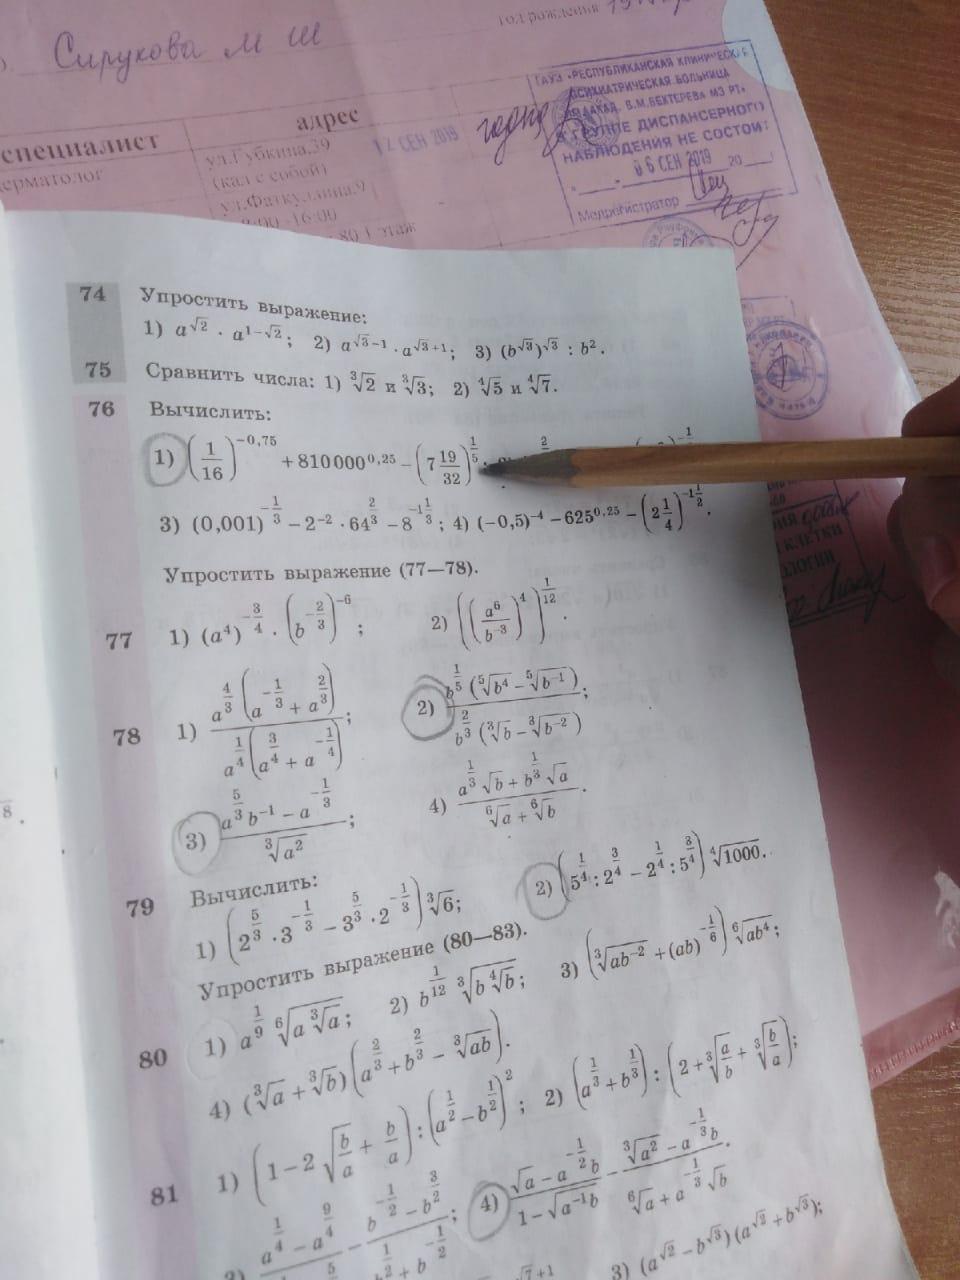 Сирукова М Ш
год рождения
специалист
адрес
ул.Губкина,39
(кал с собой)
ул.Фаткуллина,9
8:00 -16:00
1 этаж
СЕН 2019
годна
ГАУЗ «РЕСПУБЛИКАНСКАЯ КЛИНИЧЕСКАЯ
ПСИХИАТРИЧЕСКАЯ БОЛЬНИЦА
АКАД. В.М.БЕХТЕРЕВА МЗ РТ»
ГРУППЕ ДИСПАНСЕРНОГО
НАБЛЮДЕНИЯ НЕ СОСТОИТ
06 СЕН 2019 20
Медрегистратор
74 Упростить выражение:
1) a^{√2} · a^{1−√2}; 2) a^{√3−1} · a^{√3+1}; 3) (b^{√3})^{√3} : b².
75 Сравнить числа: 1) ∛2 и ∛3; 2) ∜5 и ∜7.
76 Вычислить:
1) (1/16)^{−0,75} + 810 000^{0,25} − (7 19/32)^{1/5};
3) (0,001)^{−1/3} − 2^{−2} · 64^{2/3} − 8^{−1 1/3}; 4) (−0,5)^{−4} − 625^{0,25} − (2 1/4)^{−1 1/2}.
Упростить выражение (77—78).
77 1) (a⁴)^{−3/4} · (b^{−2/3})^{−6}; 2) ((a⁶/b^{−3})⁴)^{1/12}.
78 1) a^{4/3}(a^{−1/3} + a^{2/3}) / a^{1/4}(a^{3/4} + a^{−1/4}); 2) b^{1/5}(⁵√b⁴ − ⁵√b^{−1}) / b^{2/3}(∛b − ∛b^{−2});
3) (a^{5/3}b^{−1} − a^{−1/3}) / ∛a²; 4) (a^{1/3}√b + b^{1/3}√a) / (⁶√a + ⁶√b).
79 Вычислить:
1) (2^{5/3} · 3^{−1/3} − 3^{5/3} · 2^{−1/3}) ∛6; 2) (5^{1/4} : 2^{3/4} − 2^{1/4} : 5^{3/4}) ∜1000.
Упростить выражение (80—83).
80 1) a^{1/9} ⁶√(a∛a); 2) b^{1/12} ∛(b∜b); 3) (∛(ab^{−2}) + (ab)^{−1/6}) ⁶√(ab⁴);
4) (∛a + ∛b)(a^{2/3} + b^{2/3} − ∛(ab)).
81 1) (1 − 2√(b/a) + b/a) : (a^{1/2} − b^{1/2})²; 2) (a^{1/3} + b^{1/3}) : (2 + ∛(a/b) + ∛(b/a));
a^{1/4} − a^{9/4} − b^{−1/2} − b^{3/2}; 4) (√a − a^{−1/2}b) / (1 − √(a^{−1}b)) − (∛a² − a^{−1/3}b) / (⁶√a + a^{−1/3}√b).
3) (a^{√2} − b^{√3})(a^{√2} + b^{√3});